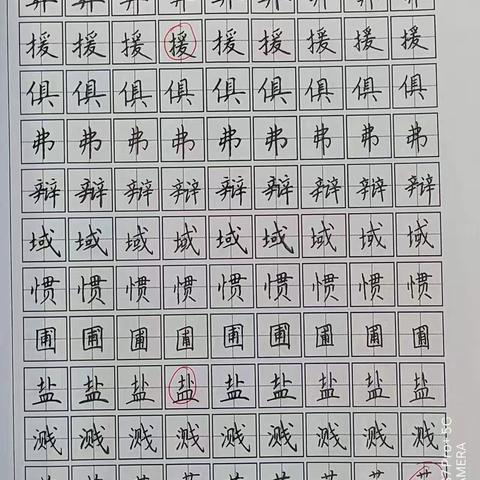 援援援援援援援援援
俱俱俱俱俱俱俱俱俱
弗弗弗弗弗弗弗弗弗
辩辩辩辩辩辩辩辩辩
域域域域域域域域域
惯惯惯惯惯惯惯惯惯
圃圃圃圃圃圃圃圃圃
盐盐盐盐盐盐盐盐盐
溅溅溅溅溅溅溅溅溅
Pro+ 5G
AMERA